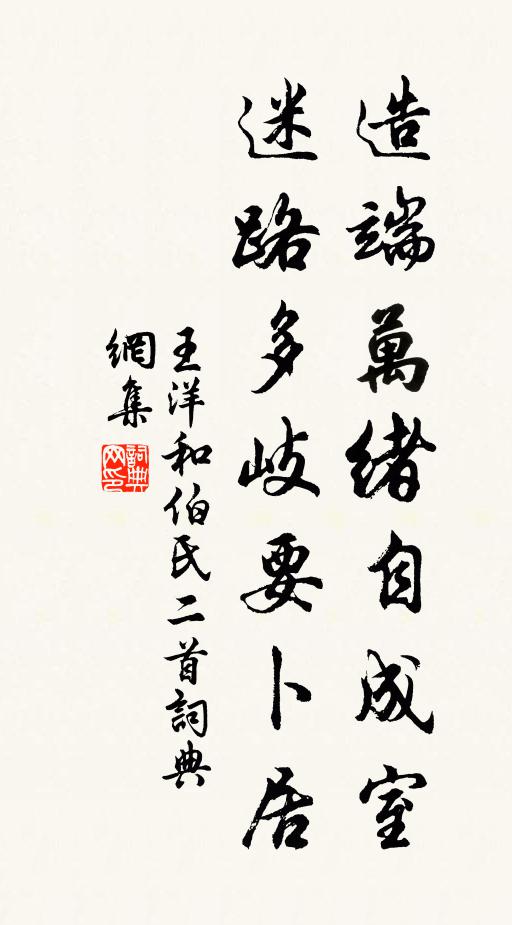 造端萬緒自成室
迷路多岐要卜居
王洋和伯氏二首詞典
網集
詞典
网印